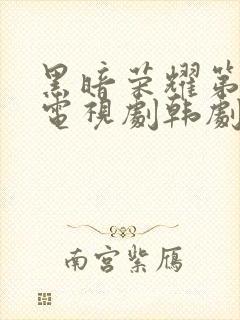 黑暗荣耀第
電視劇韩劇
南宫紫鴈